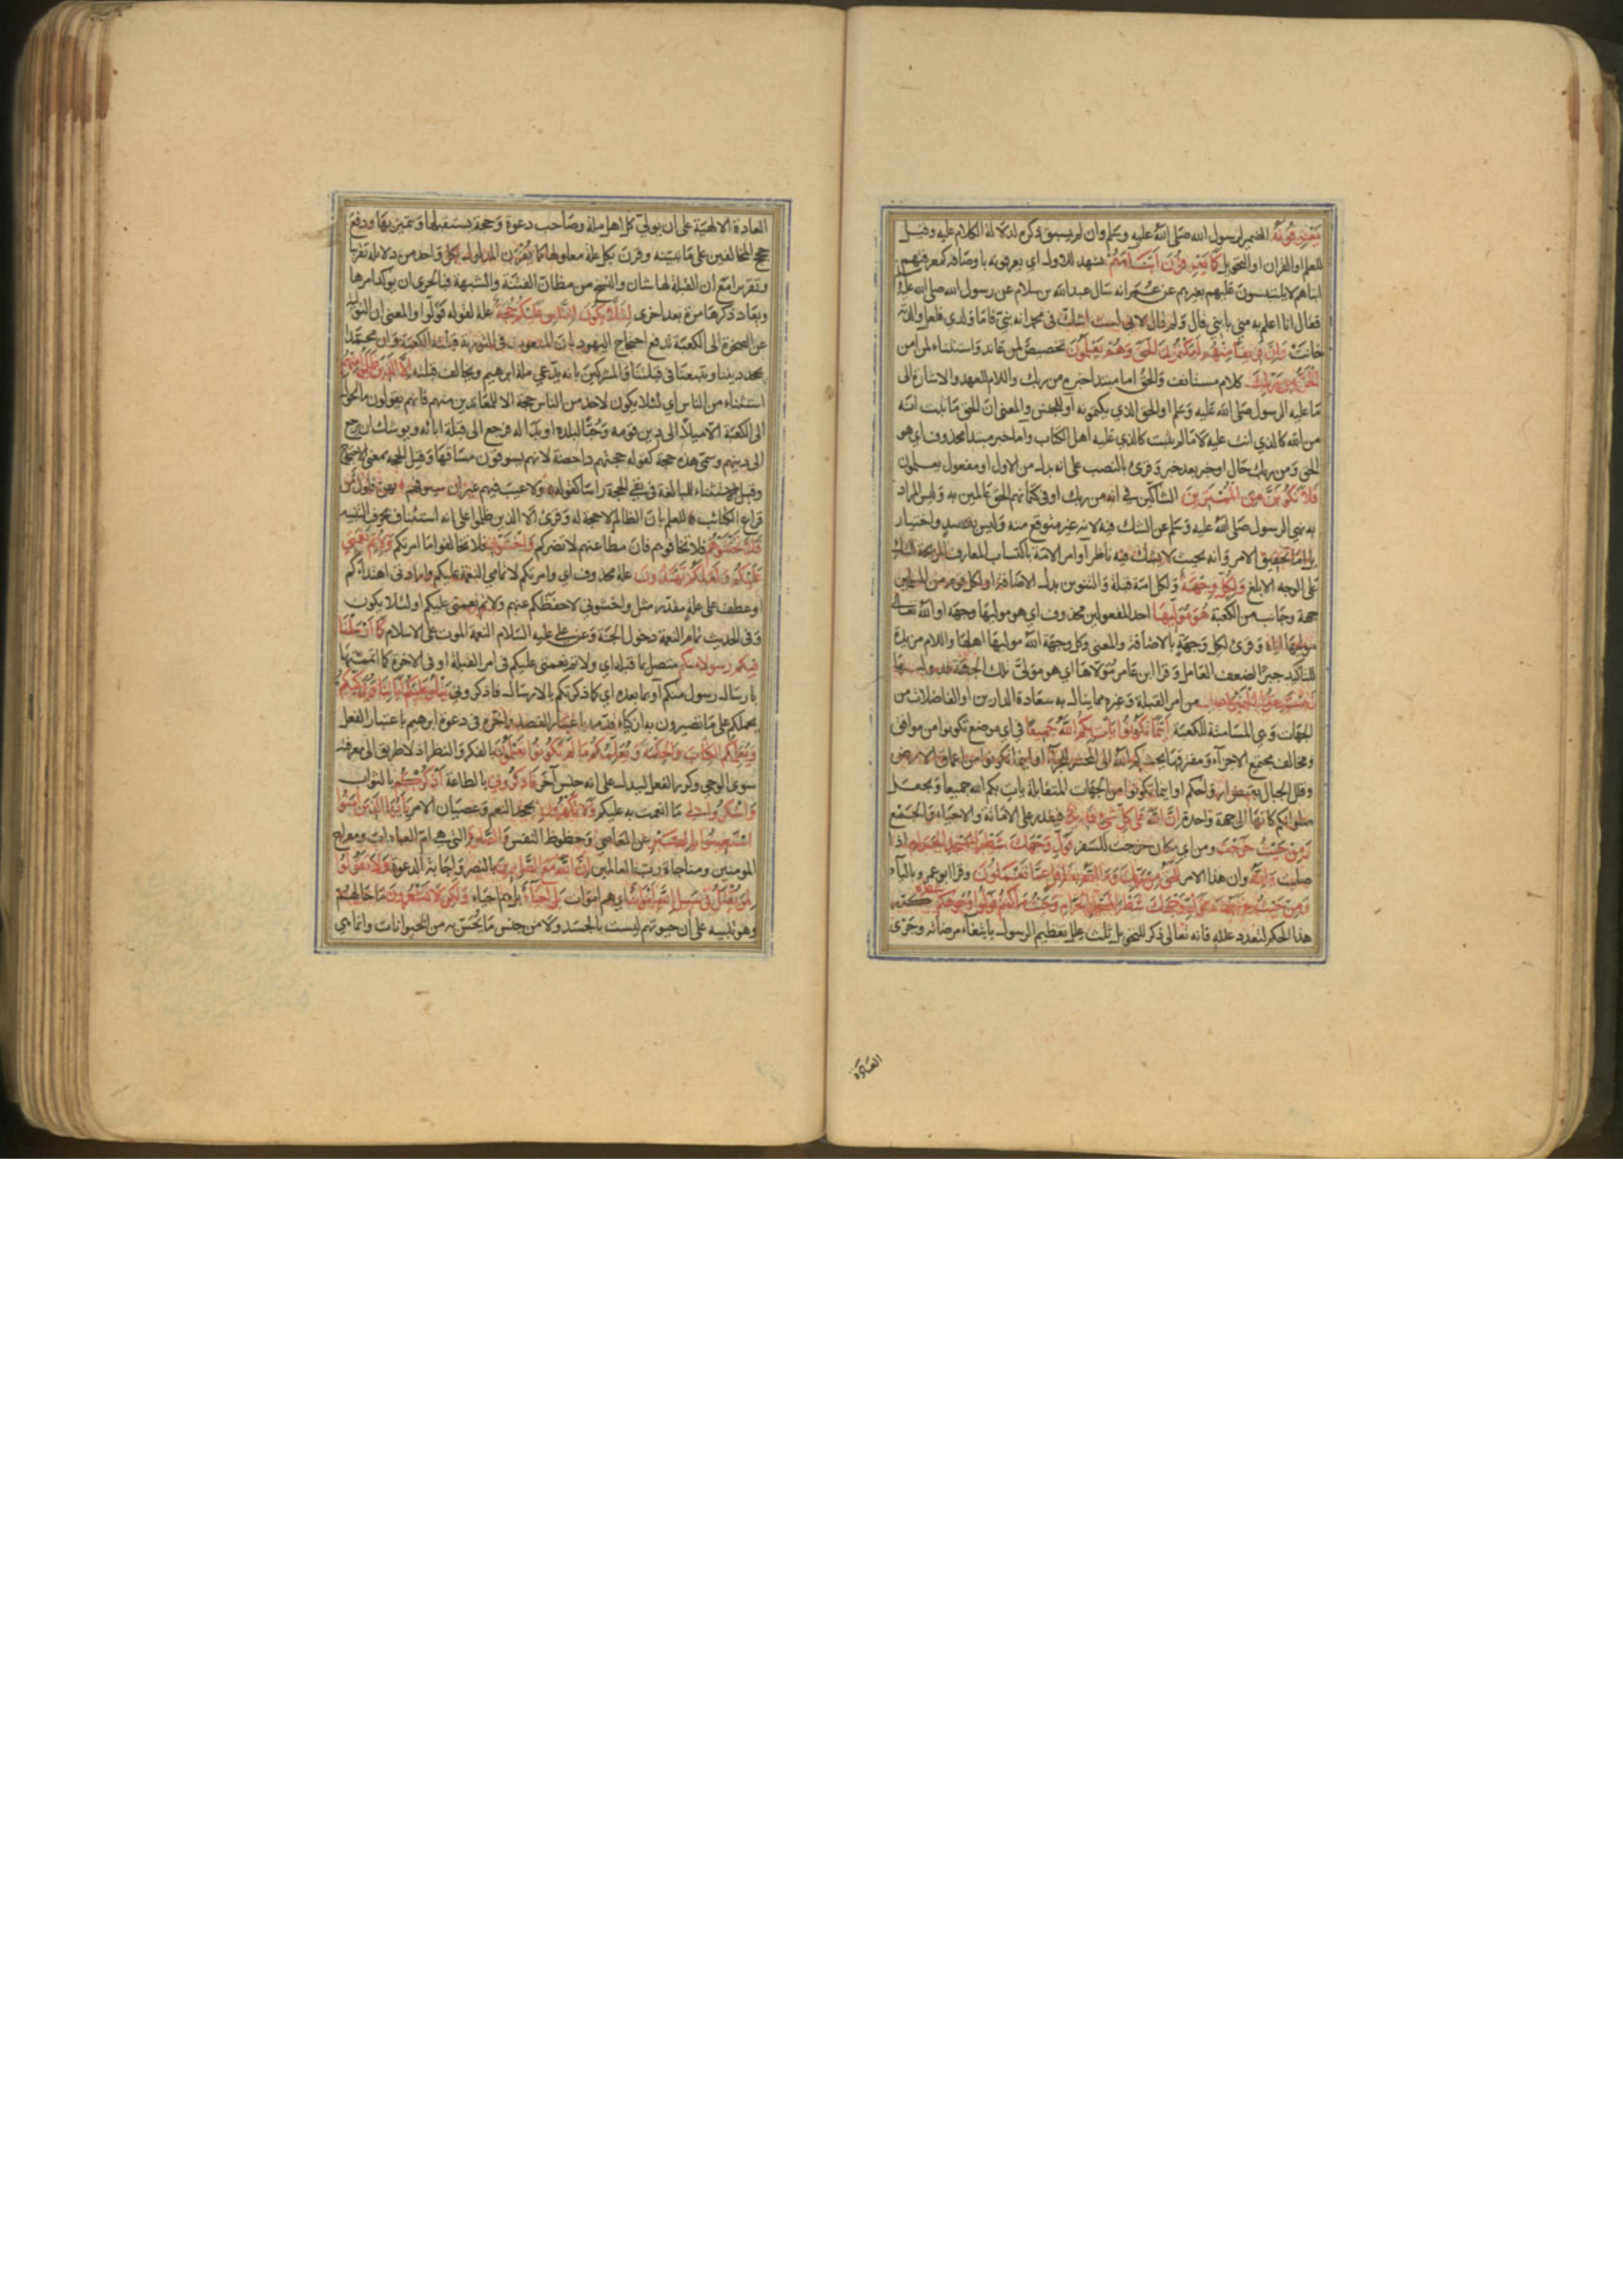 يعرفونه الضمير لرسول الله صلى الله عليه وسلم وان لم يسبق ذكره لدلالة الكلام عليه وقيل
للعلم او القران او التحويل كما يعرفون ابناءهم يشهد للاول اي يعرفونه باوصافه كمعرفتهم
ابناهم لا يلتبسون عليهم بغيرهم عن عمر انه سال عبدالله بن سلام عن رسول الله صلى الله عليه
فقال انا اعلم به مني بابني قال ولم قال لاني لست اشك في محمد انه نبي فاما ولدي فلعل والدته
خانت وان فريقا منهم ليكتمون الحق وهم يعلمون تخصيص لمن عاند واستثناء لمن امن
الحق من ربك كلام مستانف والحق اما مبتدا خبره من ربك واللام للعهد والاشارة الى
ما عليه الرسول صلى الله عليه وسلم او الحق الذي يكتمونه او للجنس والمعنى ان الحق ما ثبت انه
من الله كالذي انت عليه لا ما لم يثبت كالذي عليه اهل الكتاب واما خبر مبتدا محذوف اي هو
الحق ومن ربك حال او خبر بعد خبر وقرئ بالنصب على انه بدل من الاول او مفعول يعلمون
فلا تكونن من الممترين الشاكين في انه من ربك او في كتمانهم الحق عالمين به وليس المراد
به نهي الرسول صلى الله عليه وسلم عن الشك فيه لانه غير متوقع منه وليس بقصد واختيار
بل اما تحقيق الامر وانه بحيث لا يشك فيه ناظر او امر الامة باكتساب المعارف المزيحة للشك
على الوجه الابلغ ولكل وجهة ولكل امة قبلة والتنوين بدل الاضافة او لكل قوم من المسلمين
جهة وجانب من الكعبة هو موليها احد المفعولين محذوف اي هو موليها وجهه او الله تعالى
موليها اياه وقرئ لكل وجهة بالاضافة والمعنى وكل وجهة الله موليها اهلها واللام مزيدة
للتاكيد جبرا لضعف العامل وقرا ابن عامر مولاها اي هو مولى تلك الجهة قد وليها
فاستبقوا الخيرات من امر القبلة وغيره مما ينال به سعادة الدارين او الفاضلات من
الجهات وهي المسامتة للكعبة اينما تكونوا يات بكم الله جميعا في اي موضع تكونوا من موافق
ومخالف مجتمع الاجزآء ومفترقها يحشركم الله الى المحشر للجزآء او اينما تكونوا من اعماق الارض
وقلل الجبال يقبض ارواحكم او اينما تكونوا من الجهات المتقابلة يات بكم الله جميعا ويجعل
صلواتكم كانها الى جهة واحدة ان الله على كل شئ قدير فيقدر على الاماتة والاحياء والجمع
ومن حيث خرجت ومن اي مكان خرجت للسفر فول وجهك شطر المسجد الحرام اذا
صليت وانه وان هذا الامر للحق من ربك وما الله بغافل عما تعملون وقرا ابو عمرو بالياء
ومن حيث خرجت فول وجهك شطر المسجد الحرام وحيث ما كنتم فولوا وجوهكم شطره كرر
هذا الحكم لتعدد علله فانه تعالى ذكر للتحويل ثلث علل تعظيم الرسول بابتغاء مرضاته وجرى
العادة
العادة الالهية على ان يولي كل اهل ملة وصاحب دعوة وجهة يستقبلها ويتميز بها ودفع
حجج المخالفين على ما نبينه وقرن بكل علة معلولها كما يقرن المدلول بكل واحد من دلائله تقريبا
وتقريرا مع ان القبلة لها شان والنسخ من مظان الفتنة والشبهة فبالحرى ان يوكد امرها
ويعاد ذكرها مرة بعد اخرى لئلا يكون للناس عليكم حجة علة لقوله فولوا والمعنى ان التولية
عن الصخرة الى الكعبة تدفع احتجاج اليهود بان المنعوت في التورية قبلته الكعبة وان محمدا
يجحد ديننا ويتبعنا في قبلتنا والمشركين بانه يدعي ملة ابرهيم ويخالف قبلته الا الذين ظلموا منهم
استثناء من الناس اي لئلا يكون لاحد من الناس حجة الا للمعاندين منهم فانهم يقولون ما تحول
الى الكعبة الا ميلا الى دين قومه وحبا لبلده او بدا له فرجع الى قبلة ابائه ويوشك ان يرجع
الى دينهم وسمى هذه حجة كقوله حجتهم داحضة لانهم يسوقون مساقها وقيل الحجة بمعنى الاحتجاج
وقيل الاستثناء للمبالغة في نفي الحجة راسا كقوله ولا عيب فيهم غير ان سيوفهم بهن فلول من
قراع الكتائب للعلم بان الظالم لا حجة له وقرئ الا الذين ظلموا على انه استئناف بحرف التنبيه
فلا تخشوهم فلا تخافوهم فان مطاعنهم لا تضركم واخشوني فلا تخالفوا ما امرتكم ولاتم نعمتي
عليكم ولعلكم تهتدون علة محذوف اي وامرتكم لاتمامي النعمة عليكم وارادتى اهتداءكم
او عطف على علة مقدرة مثل واخشوني لاحفظكم عنهم ولاتم نعمتي عليكم او لئلا يكون
وفى الحديث تمام النعمة دخول الجنة وعن علي عليه السلام النعمة الموت على الاسلام كما ارسلنا
فيكم رسولا منكم متصل بما قبله اي ولاتم نعمتي عليكم في امر القبلة او في الاخرة كما اتممتها
بارسال رسول منكم او بما بعده اي كما ذكرتكم بالارسال فاذكروني يتلوا عليكم اياتنا ويزكيكم
يحملكم على ما تصيرون به ازكياء قدمه باعتبار القصد واخره في دعوة ابرهيم باعتبار الفعل
ويعلمكم الكتاب والحكمة ويعلمكم ما لم تكونوا تعلمون بالفكر والنظر اذ لا طريق الى معرفته
سوى الوحي وكرر الفعل ليدل على انه جنس آخر فاذكروني بالطاعة اذكركم بالثواب
واشكروا لي ما انعمت به عليكم ولا تكفرون بجحد النعم وعصيان الامر يا ايها الذين امنوا
استعينوا بالصبر عن المعاصي وحظوظ النفس والصلوة التي هي ام العبادات ومعراج
المومنين ومناجاة رب العالمين ان الله مع الصابرين بالنصر واجابة الدعوة ولا تقولوا
لمن يقتل في سبيل الله اموات اي هم اموات بل احياء بل هم احياء ولكن لا تشعرون ما حالهم
وهو تنبيه على ان حيوتهم ليست بالجسد ولا من جنس ما يحس به من الحيوانات وانما هي